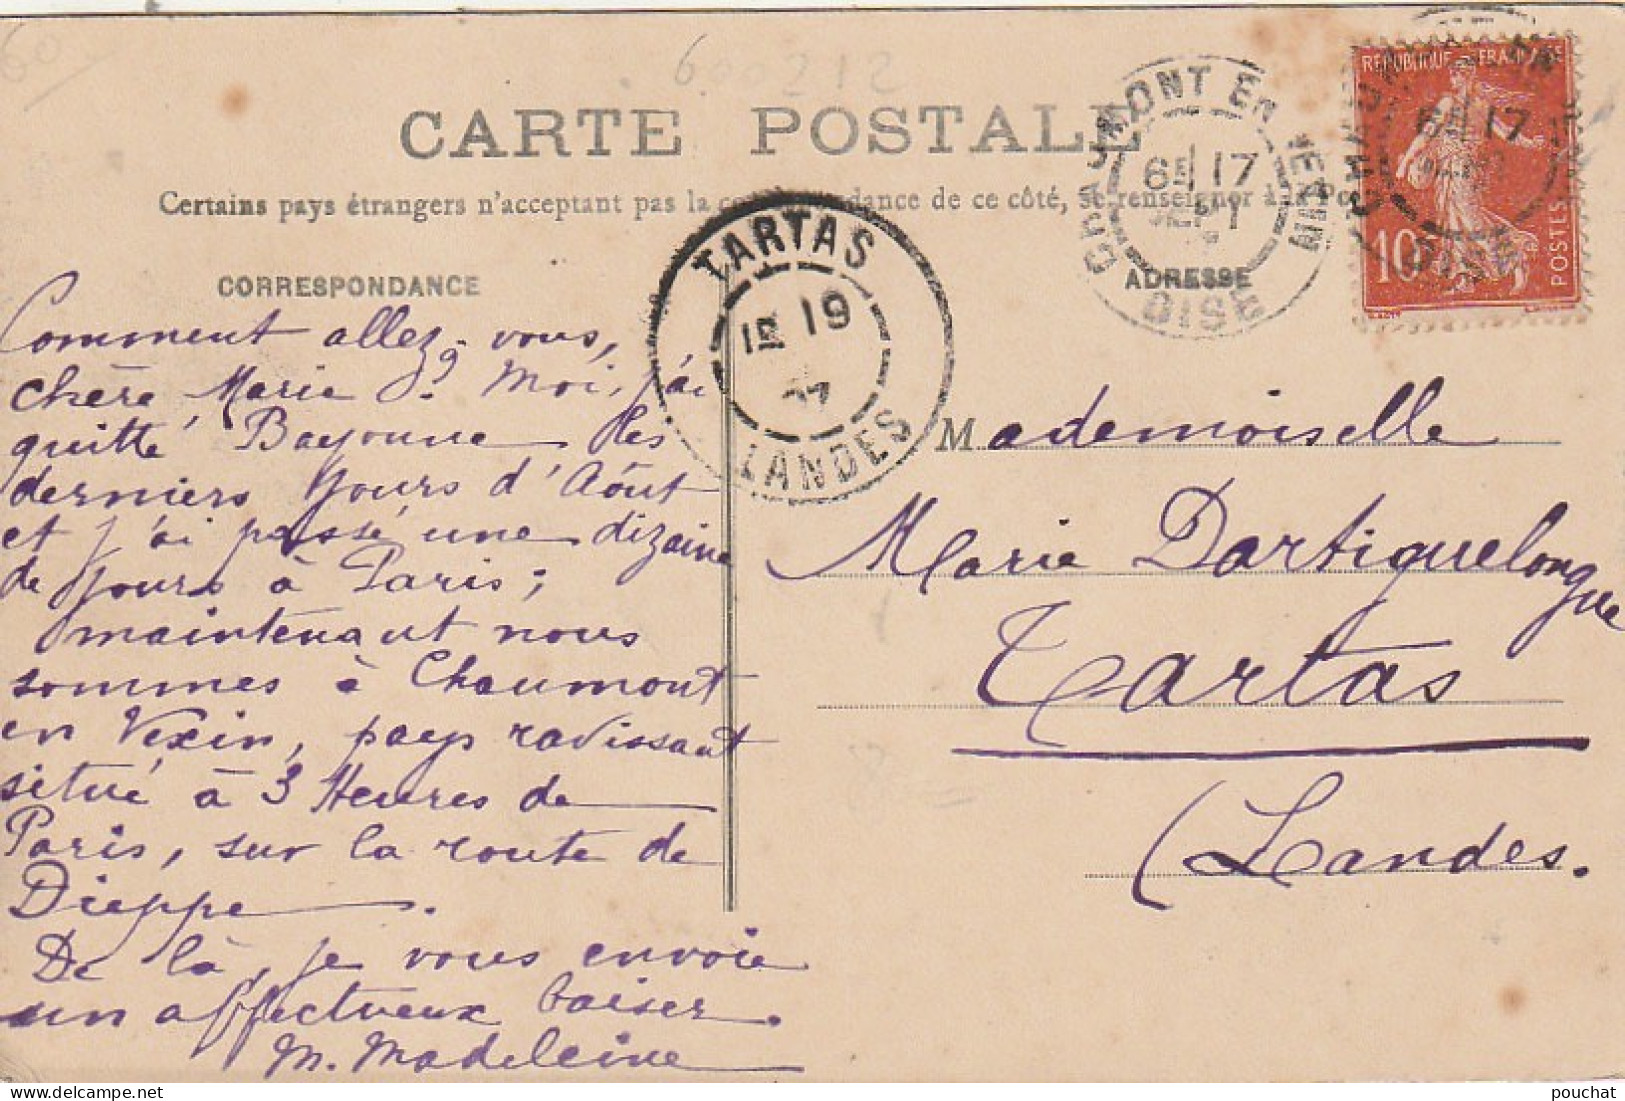 60
60 212
CARTE POSTALE
Certains pays étrangers n'acceptant pas la correspondance de ce côté, se renseigner à la Poste
CORRESPONDANCE
ADRESSE
CHAUMONT EN VEXIN
6E 17
SEPT
OISE
REPUBLIQUE FRANÇAISE
10c
POSTES
TARTAS
1E 19
07
LANDES
Comment allez-vous,
chère Marie ? Moi, j'ai
quitté Bayonne les
derniers jours d'Aôut
et j'ai passé une dizaine
de jours à Paris ;
maintenant nous
sommes à Chaumont
en Vexin, pays ravissant
situé à 3 Heures de
Paris, sur la route de
Dieppe.
De là, je vous envoie
un affectueux baiser.
M. Madeleine
Mademoiselle
Marie Dartiguelongue
Tartas
(Landes.
pouchat